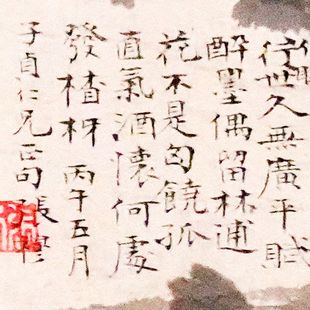 行世久無廣平賦
醉墨偶留林逋
花不是匈饒孤
直氣酒懷何處
發楂枒 丙午五月
子貞仁兄正句 張穆